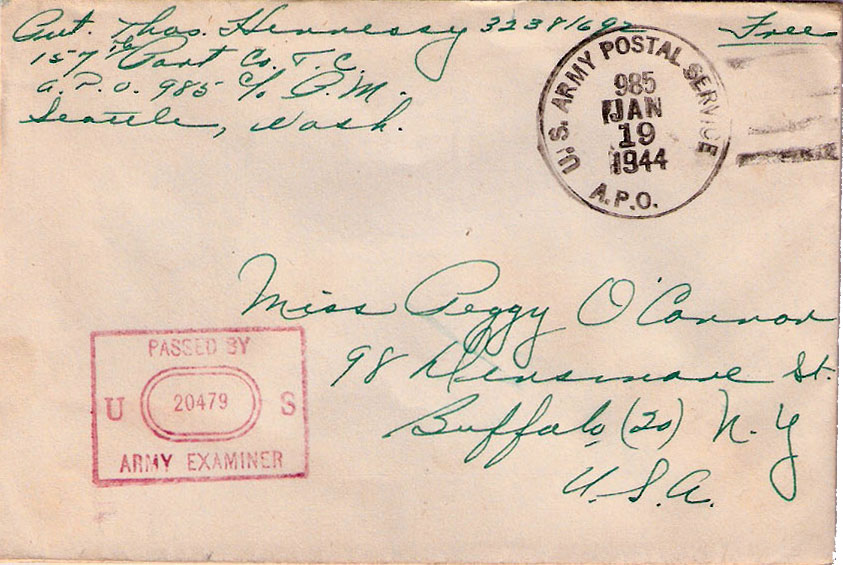 Pvt. Thos. Hennessy 32381692
Free
157th Port Co. T.C.
A.P.O. 985 c/o P.M.
Seattle, Wash.
U.S. ARMY POSTAL SERVICE
985
JAN
19
1944
A.P.O.
Miss Peggy O'Connor
98 Densmore St.
Buffalo, (20) N.Y
U.S.A.
PASSED BY
U 20479 S
ARMY EXAMINER